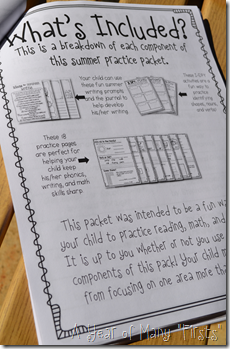 What's Included?
This is a breakdown of each component of
this summer practice packet.
Your child can use
these fun summer
writing prompts
and the journal to
help develop
his/her writing.
These
activities are a
fun way to
practice
identifying
shapes,
and
These 18
practice pages
are perfect for
helping your
child keep
his/her phonics,
writing, and math
skills sharp.
This packet was intended to be a fun wa
your child to practice reading, math, and
It is up to you whether or not you use
components of this pack! Your child m
from focusing on one area more th
A Year of Many "Firsts"